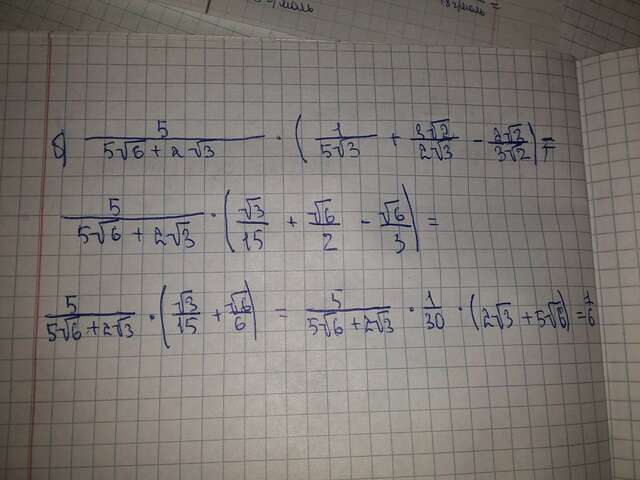 г/моль 18 г/моль =
б) 5/(5√6 + 2√3) · (1/(5√3) + 3√2/(2√3) - 2√3/(3√2)) =
5/(5√6 + 2√3) · (√3/15 + √6/2 - √6/3) =
5/(5√6 + 2√3) · (√3/15 + √6/6) = 5/(5√6 + 2√3) · 1/30 · (2√3 + 5√6) = 1/6